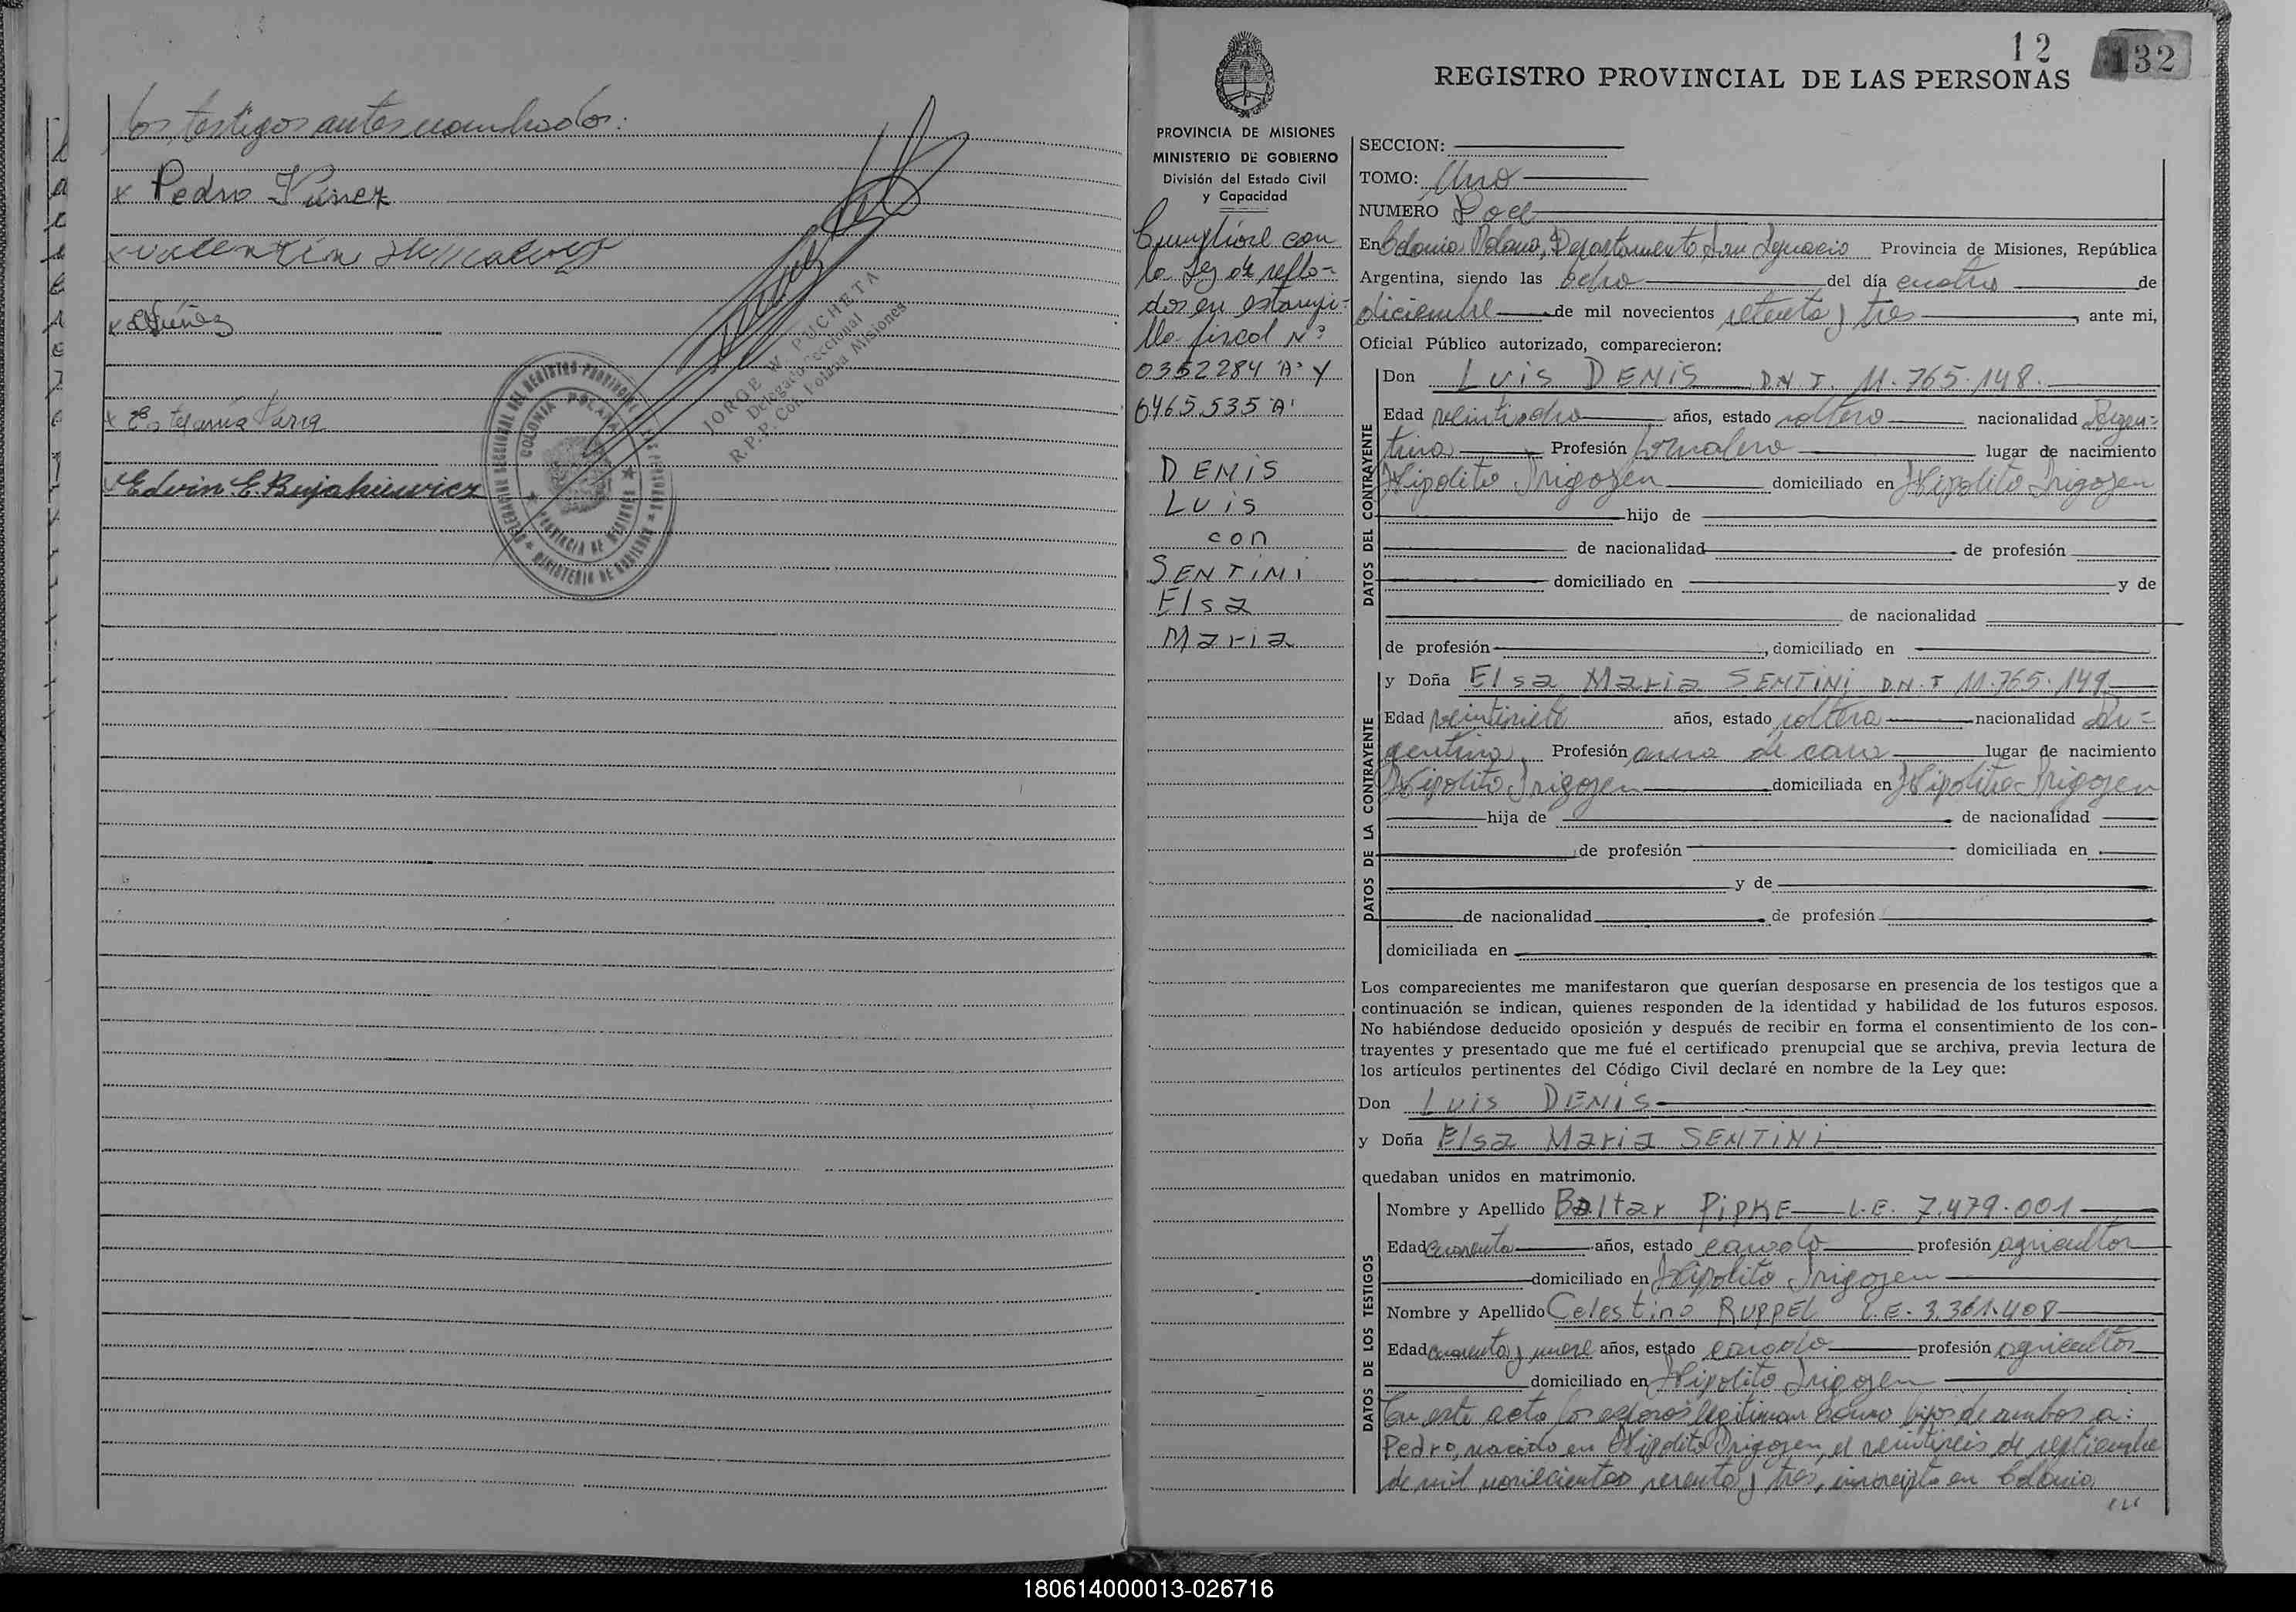 los testigos antes nombrados:
x Pedro Núnez
x Valentin
x Núñez
x Estefania
x Edvin E. Bujakiewicz
COLONIA POLANA
PROVINCIA DE MISIONES
JORGE W. PUCHETA
Delegado Seccional
R.P.P. Col. Polana Misiones
12
132
REGISTRO PROVINCIAL DE LAS PERSONAS
PROVINCIA DE MISIONES
MINISTERIO DE GOBIERNO
División del Estado Civil
y Capacidad
Cumplióse con
la Ley de sella-
dos en estampi-
lla fiscal Nº
0352284 "A" y
6465.535 "A"
DENIS
LUIS
con
SENTINI
Elsa
Maria
SECCION:
TOMO: Uno
NUMERO Doce
En Colonia Polana, Departamento San Ignacio Provincia de Misiones, República
Argentina, siendo las ocho del día cuatro de
diciembre de mil novecientos setenta y tres, ante mi,
Oficial Público autorizado, comparecieron:
DATOS DEL CONTRAYENTE
Don Luis DENIS D.N.I. 11.765.148.
Edad veintiocho años, estado soltero nacionalidad Argen=
tina Profesión jornalero lugar de nacimiento
Hipolito Irigoyen domiciliado en Hipolito Irigoyen
hijo de
de nacionalidad de profesión
domiciliado en y de
de nacionalidad
de profesión , domiciliado en
DATOS DE LA CONTRAYENTE
y Doña Elsa Maria SENTINI D.N.I 11.765.149
Edad veintisiete años, estado soltera nacionalidad Ar=
gentina, Profesión ama de casa lugar de nacimiento
Hipolito Irigoyen domiciliada en Hipolito Irigoyen
hija de de nacionalidad
de profesión domiciliada en
y de
de nacionalidad de profesión
domiciliada en
Los comparecientes me manifestaron que querían desposarse en presencia de los testigos que a
continuación se indican, quienes responden de la identidad y habilidad de los futuros esposos.
No habiéndose deducido oposición y después de recibir en forma el consentimiento de los con-
trayentes y presentado que me fué el certificado prenupcial que se archiva, previa lectura de
los artículos pertinentes del Código Civil declaré en nombre de la Ley que:
Don Luis DENIS
y Doña Elsa Maria SENTINI
quedaban unidos en matrimonio.
DATOS DE LOS TESTIGOS
Nombre y Apellido Baltar PIPKE L.E. 7.479.001
Edad cuarenta años, estado casado profesión agricultor
domiciliado en Hipolito Irigoyen
Nombre y Apellido Celestino RUPPEL L.E. 3.361.408
Edad cuarenta y nueve años, estado casado profesión agricultor
domiciliado en Hipolito Irigoyen
En este acto los esposos legitiman como hijos de ambos a:
Pedro, nacido en Hipolito Irigoyen, el veintiseis de septiembre
de mil novecientos sesenta y tres, inscripto en Colonia
180614000013-026716